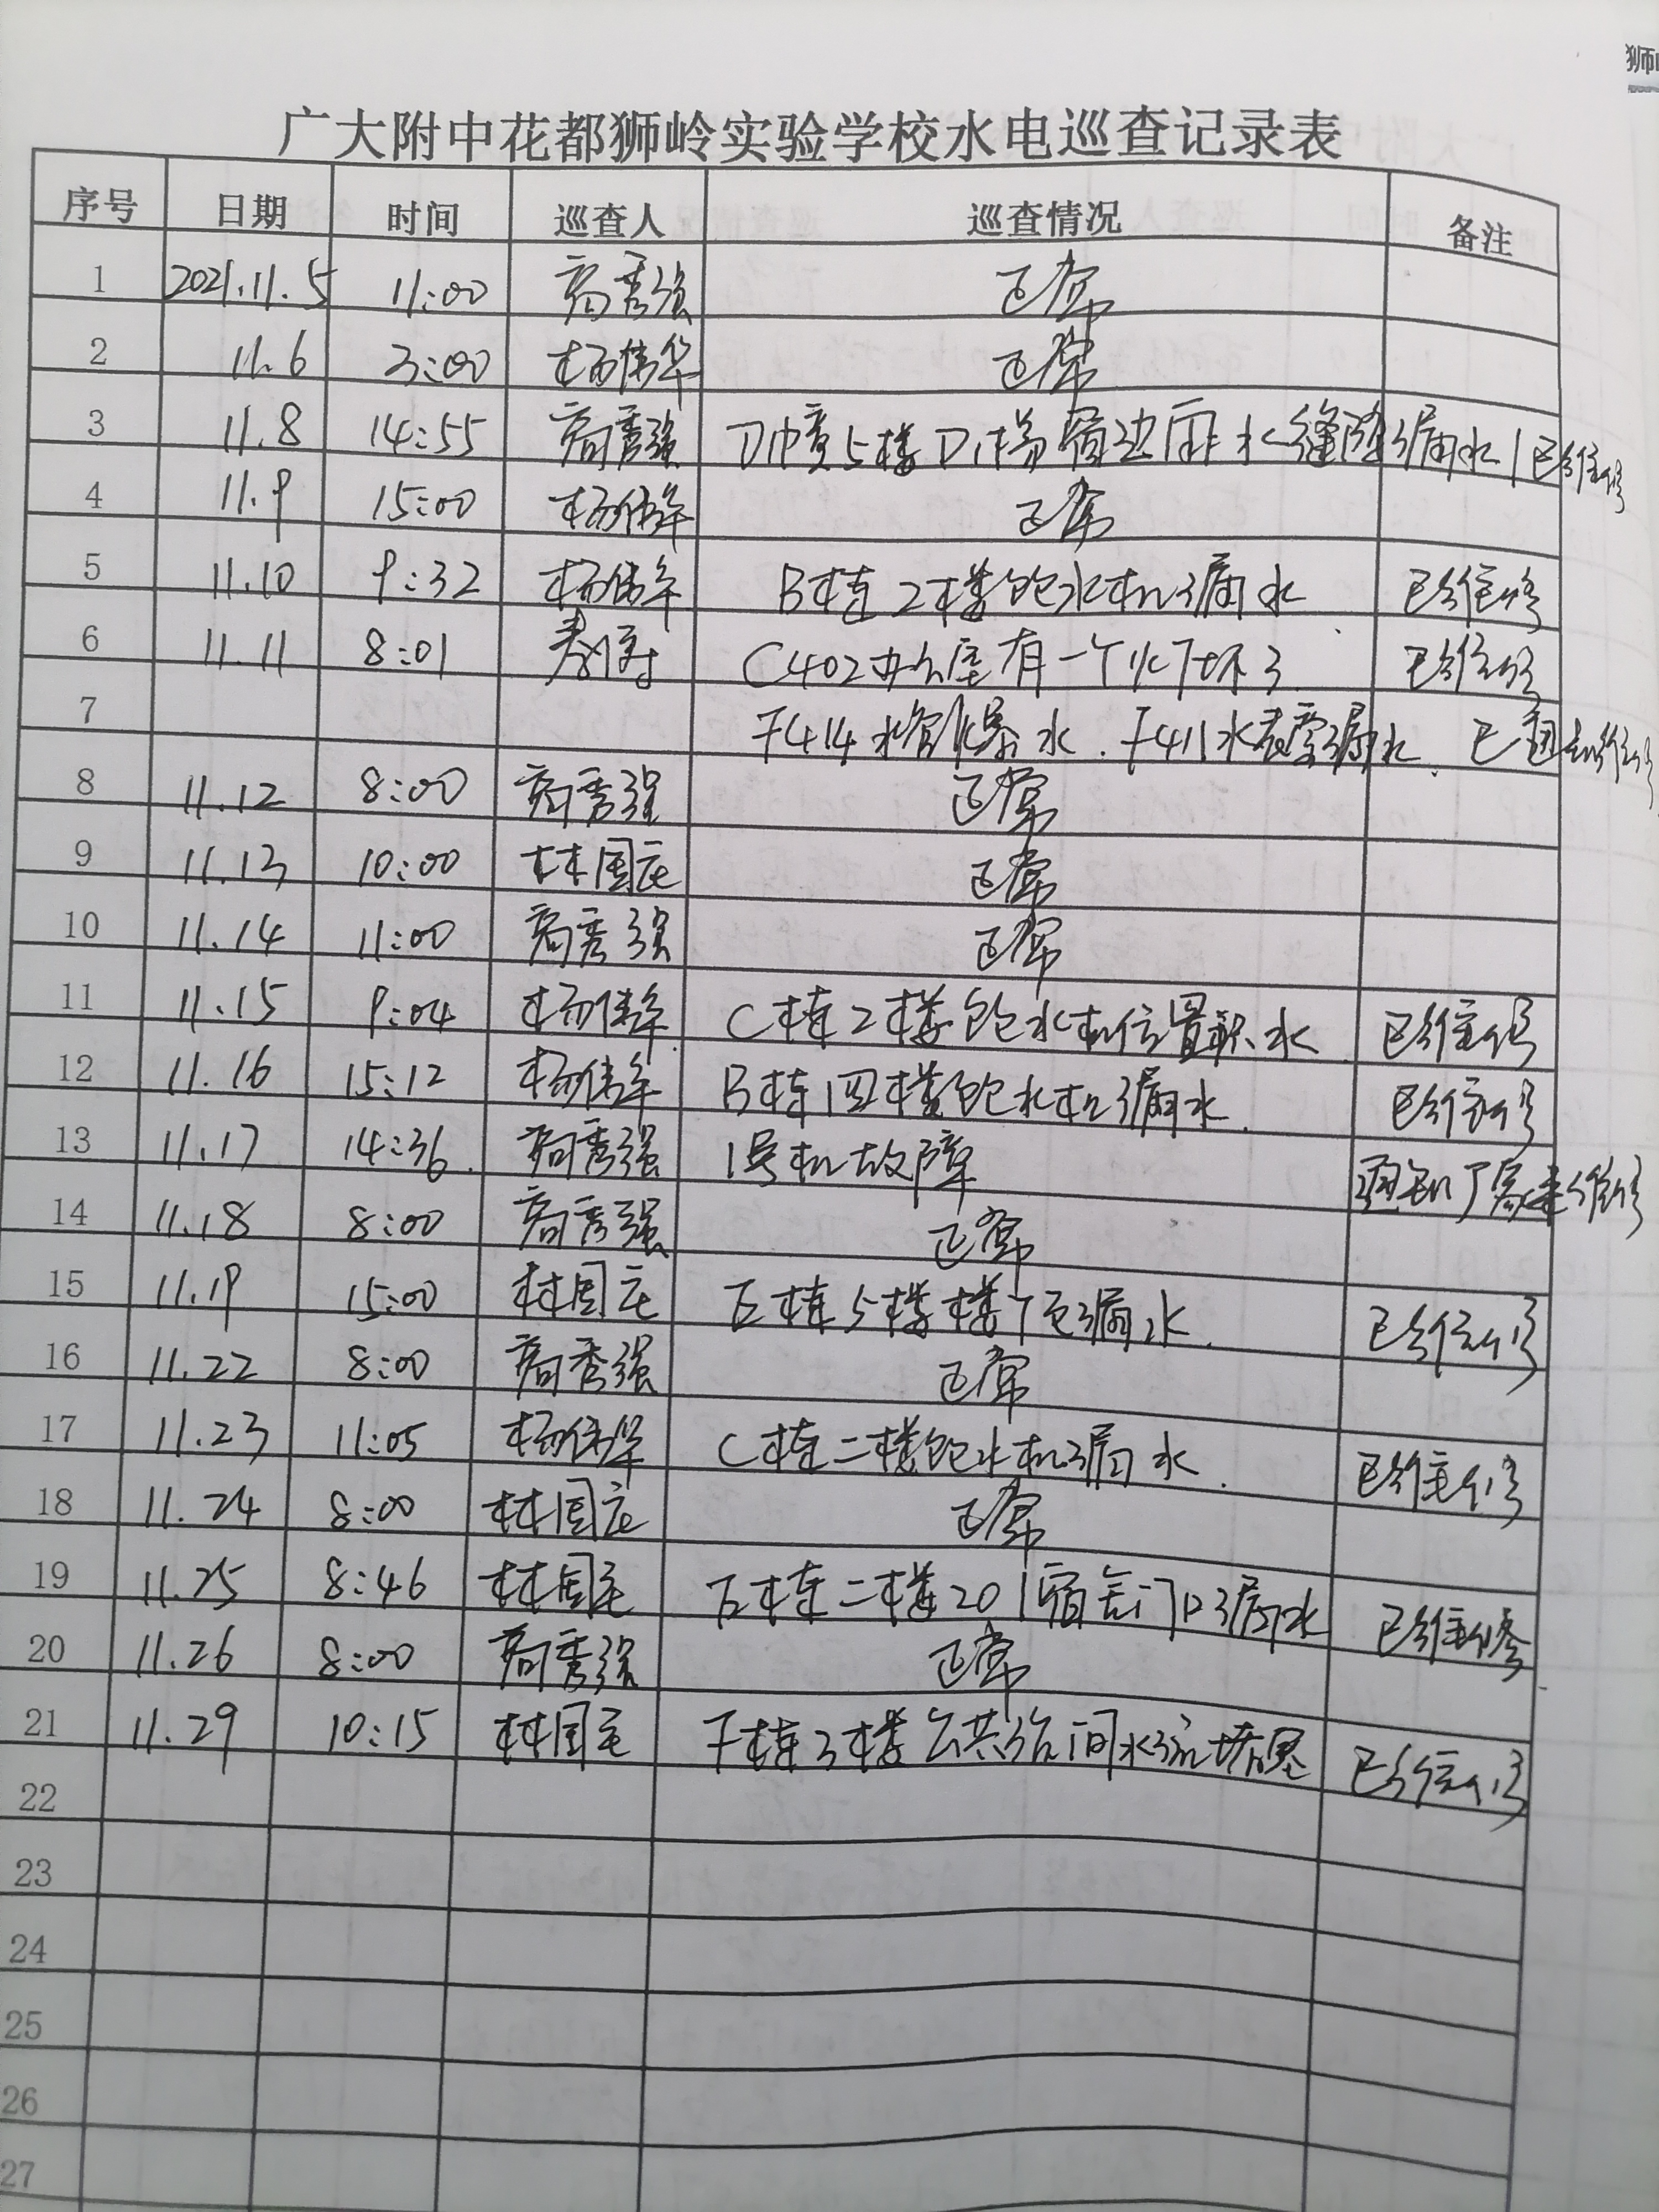 狮
广大附中花都狮岭实验学校水电巡查记录表
序号 日期 时间 巡查人 巡查情况 备注
1 2021.11.5 11:00 秀强 正常
2 11.6 3:00 杨伟华 正常
3 11.8 14:55 秀强 5楼 水缝隙漏水 已经维修
4 11.9 15:00 杨伟华 正常
5 11.10 9:32 杨伟华 B栋2楼饮水机漏水 已经维修
6 11.11 8:01 C402办公室有一个灯坏了 已经维修
7 F414水管爆水.F411水表漏水. 已通知维修
8 11.12 8:00 秀强 正常
9 11.13 10:00 林国 正常
10 11.14 11:00 秀强 正常
11 11.15 9:04 杨伟华 C栋2楼饮水机位置积水 已经维修
12 11.16 15:12 杨伟华 B栋四楼饮水机漏水. 已经维修
13 11.17 14:36. 秀强 1号机故障 通知厂家来维修
14 11.18 8:00 秀强 正常
15 11.19 15:00 林国 E栋5楼楼顶漏水. 已经维修
16 11.22 8:00 秀强 正常
17 11.23 11:05 杨伟华 C栋二楼饮水机漏水. 已经维修
18 11.24 8:00 林国 正常
19 11.25 8:46 林国 E栋二楼201宿舍门口漏水 已经维修
20 11.26 8:00 秀强 正常
21 11.29 10:15 林国 F栋3楼公共浴间水流堵塞 已经维修
22
23
24
25
26
27